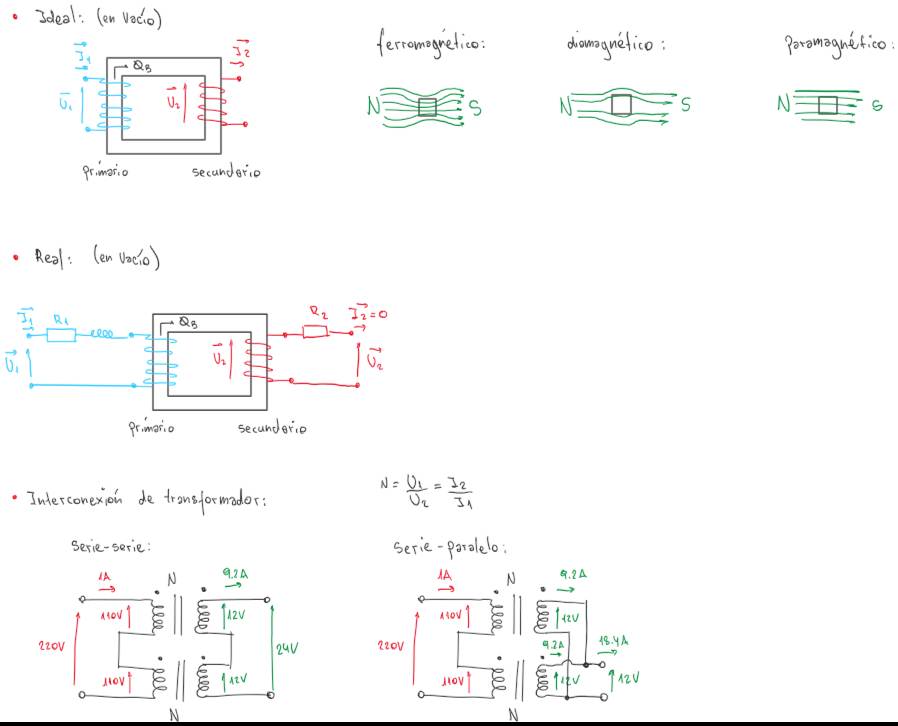 • Ideal: (en vacío)
I1
I2
ΦB
U1
U2
primario
secundario
ferromagnético:
diamagnético:
paramagnético:
N
S
N
S
N
S
• Real: (en vacío)
I1
R1
ΦB
R2
I2=0
U1
U2
U2
primario
secundario
• Interconexión de transformador:
N = U1/U2 = I2/I1
Serie-serie:
1A
N
9.2A
110V
12V
220V
24V
110V
12V
N
Serie-paralelo:
1A
N
9.2A
110V
12V
220V
9.2A
18.4A
110V
12V
12V
N